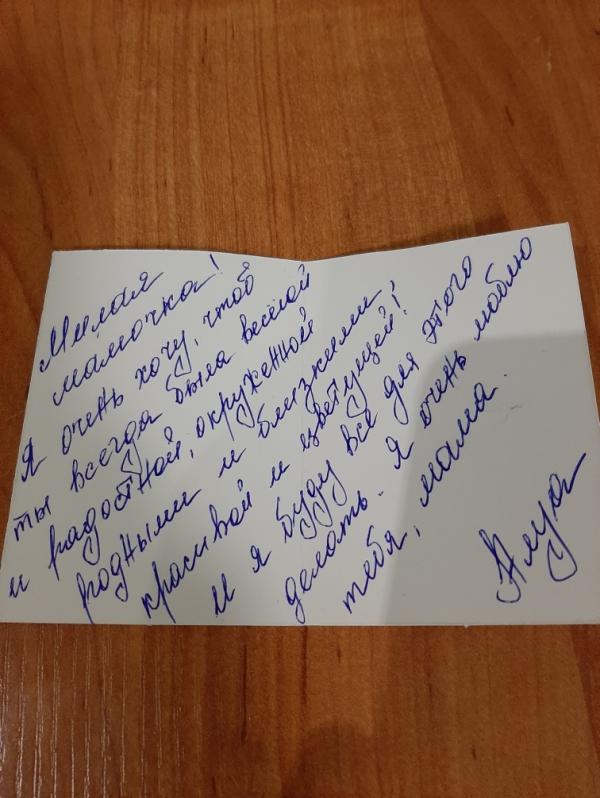 Милая
мамочка!
Я очень хочу, чтоб
ты всегда была весёлой
и радостной, окруженной
родными и близкими,
красивой и цветущей!
И я буду всё для этого
делать. Я очень люблю
тебя, мама.
Алуа